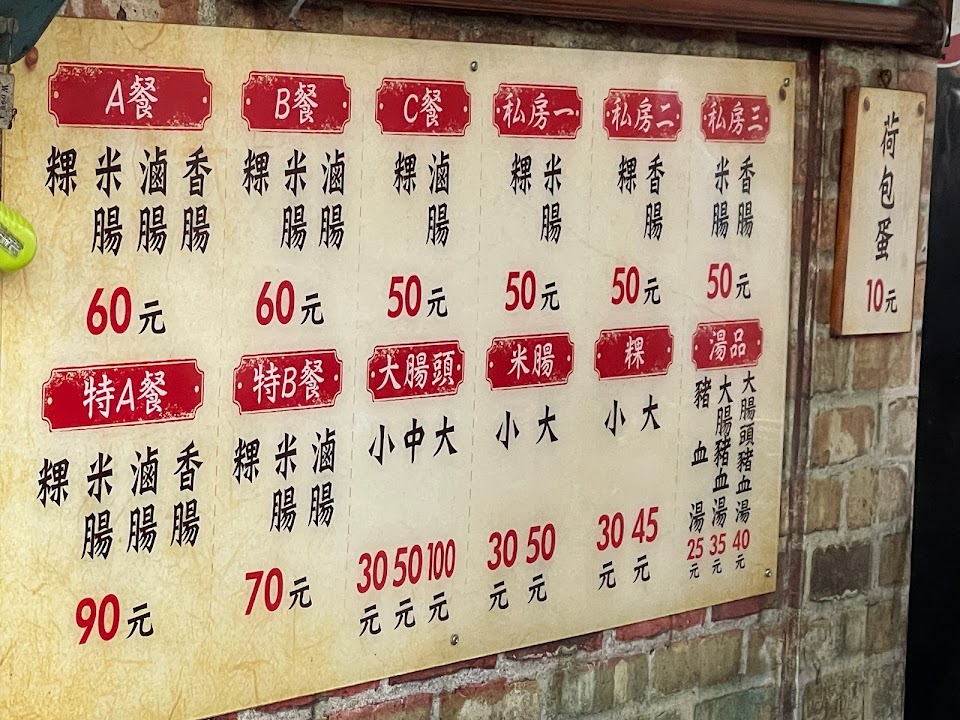 A餐
香腸
滷腸
米腸
粿
60元
B餐
滷腸
米腸
粿
60元
C餐
滷腸
粿
50元
私房一
米腸
粿
50元
私房二
香腸
粿
50元
私房三
香腸
米腸
50元
特A餐
香腸
滷腸
米腸
粿
90元
特B餐
滷腸
米腸
粿
70元
大腸頭
大 100元
中 50元
小 30元
米腸
大 50元
小 30元
粿
大 45元
小 30元
湯品
大腸頭豬血湯 40元
大腸豬血湯 35元
豬血湯 25元
荷包蛋
10元